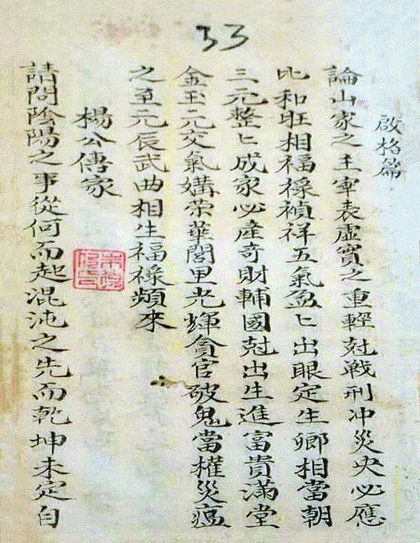 33
啟格篇
論山家之主宰表虛實之重輕尅戰刑冲災央必應
比和旺相福祿禎祥五氣盈〻出眼定生卿相當朝
三元整〻成家必產奇財輔國尅出生進富貴滿堂
金玉元交氣媾荣華閣里光輝貪官破鬼當權災瘟
之至元辰武曲相生福祿頻來
楊公傳家
請問陰陽之事從何而起混沌之先而乾坤未定自